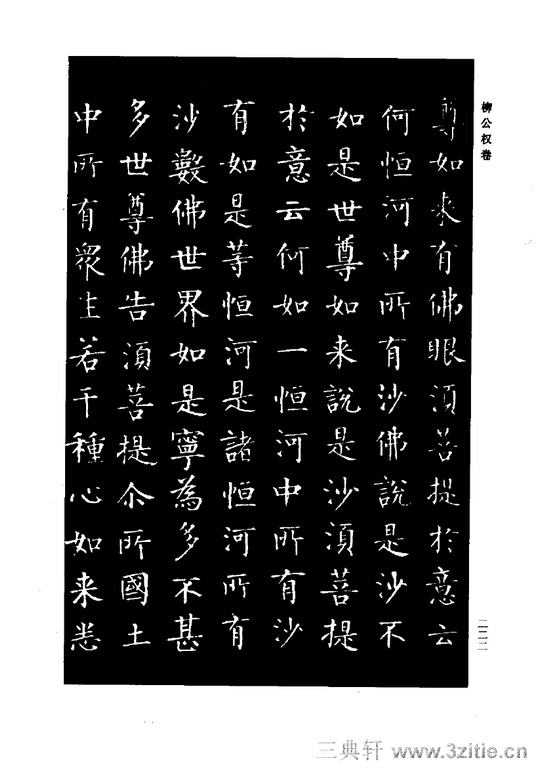 柳公权卷
尊如来有佛眼須菩提於意云
何恒河中所有沙佛說是沙不
如是世尊如来說是沙須菩提
於意云何如一恒河中所有沙
有如是等恒河是諸恒河所有
沙數佛世界如是寧為多不甚
多世尊佛告須菩提尒所國土
中所有衆生若干種心如来悉
二二二
三典轩 www.3zitie.cn